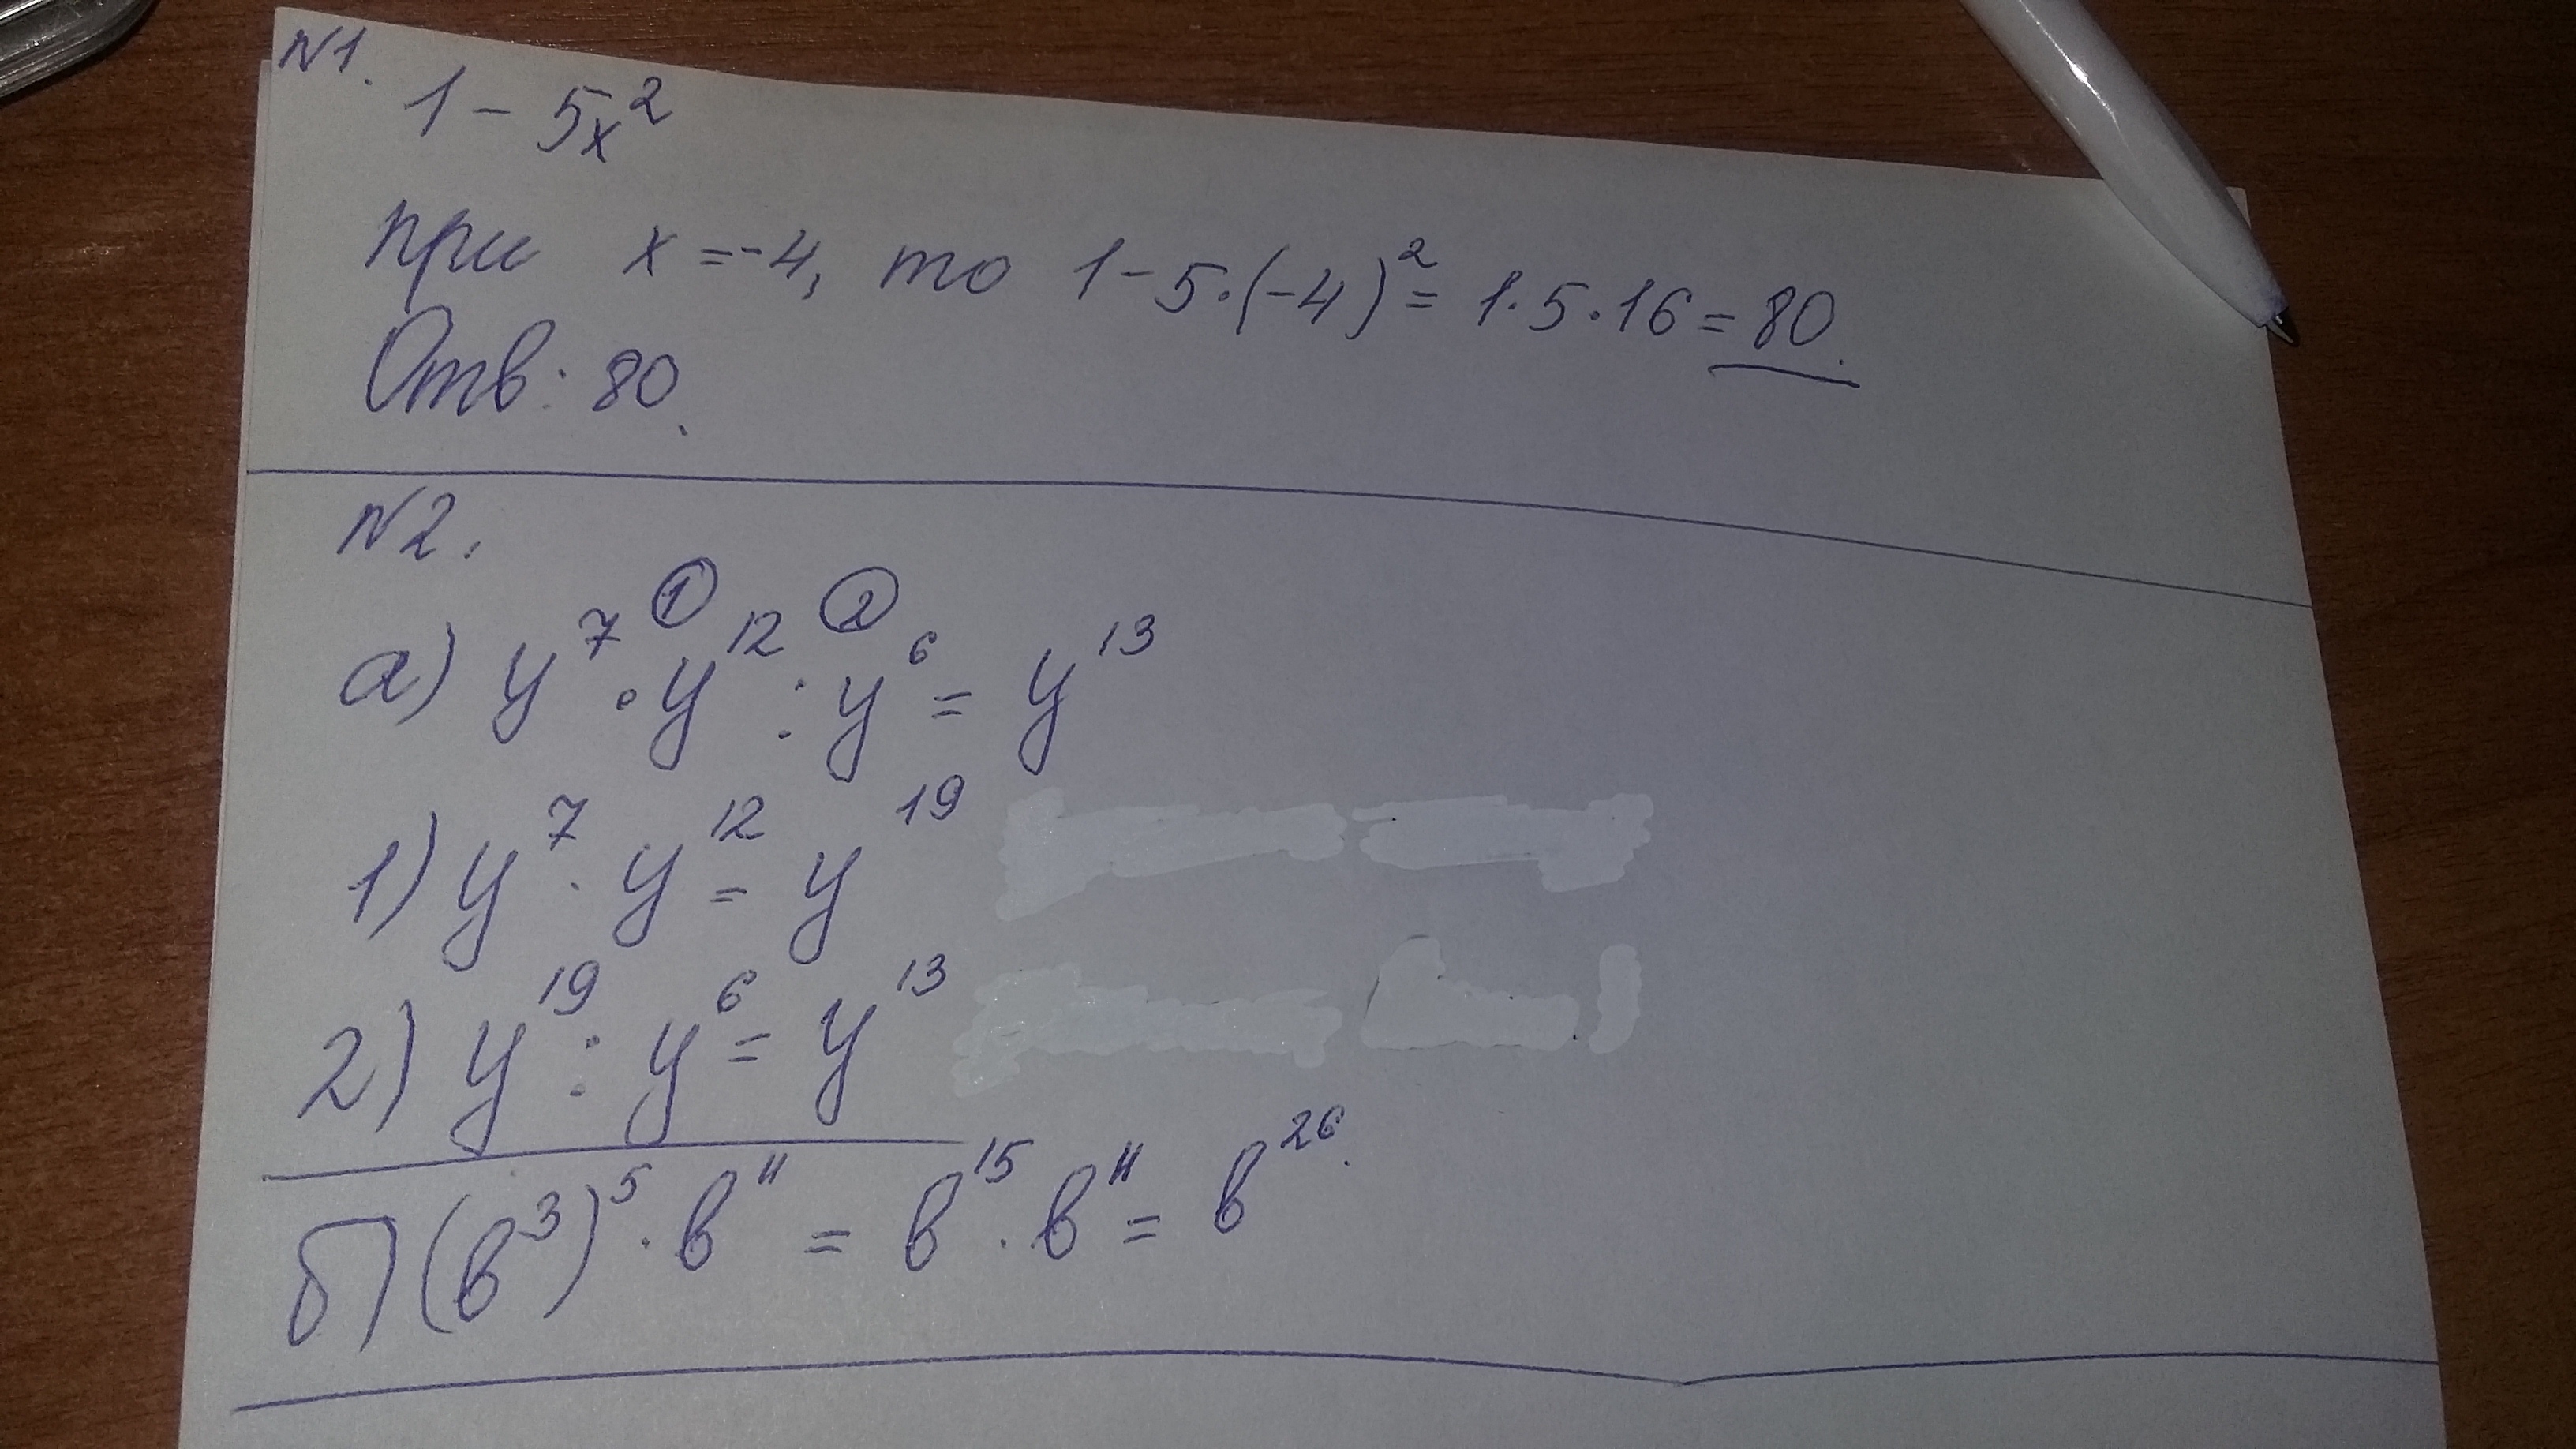 N1.
1 - 5x²
при x = -4, то 1 - 5·(-4)² = 1·5·16 = 80.
Отв: 80.
N2.
① ②
а) y⁷ · y¹² : y⁶ = y¹³
1) y⁷ · y¹² = y¹⁹
2) y¹⁹ : y⁶ = y¹³
б) (в³)⁵ · в¹¹ = в¹⁵ · в¹¹ = в²⁶.